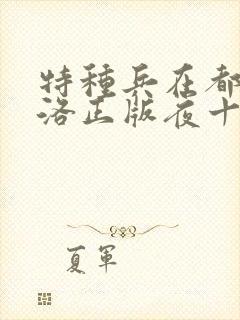 特種兵在都
洛正版夜十
夏軍